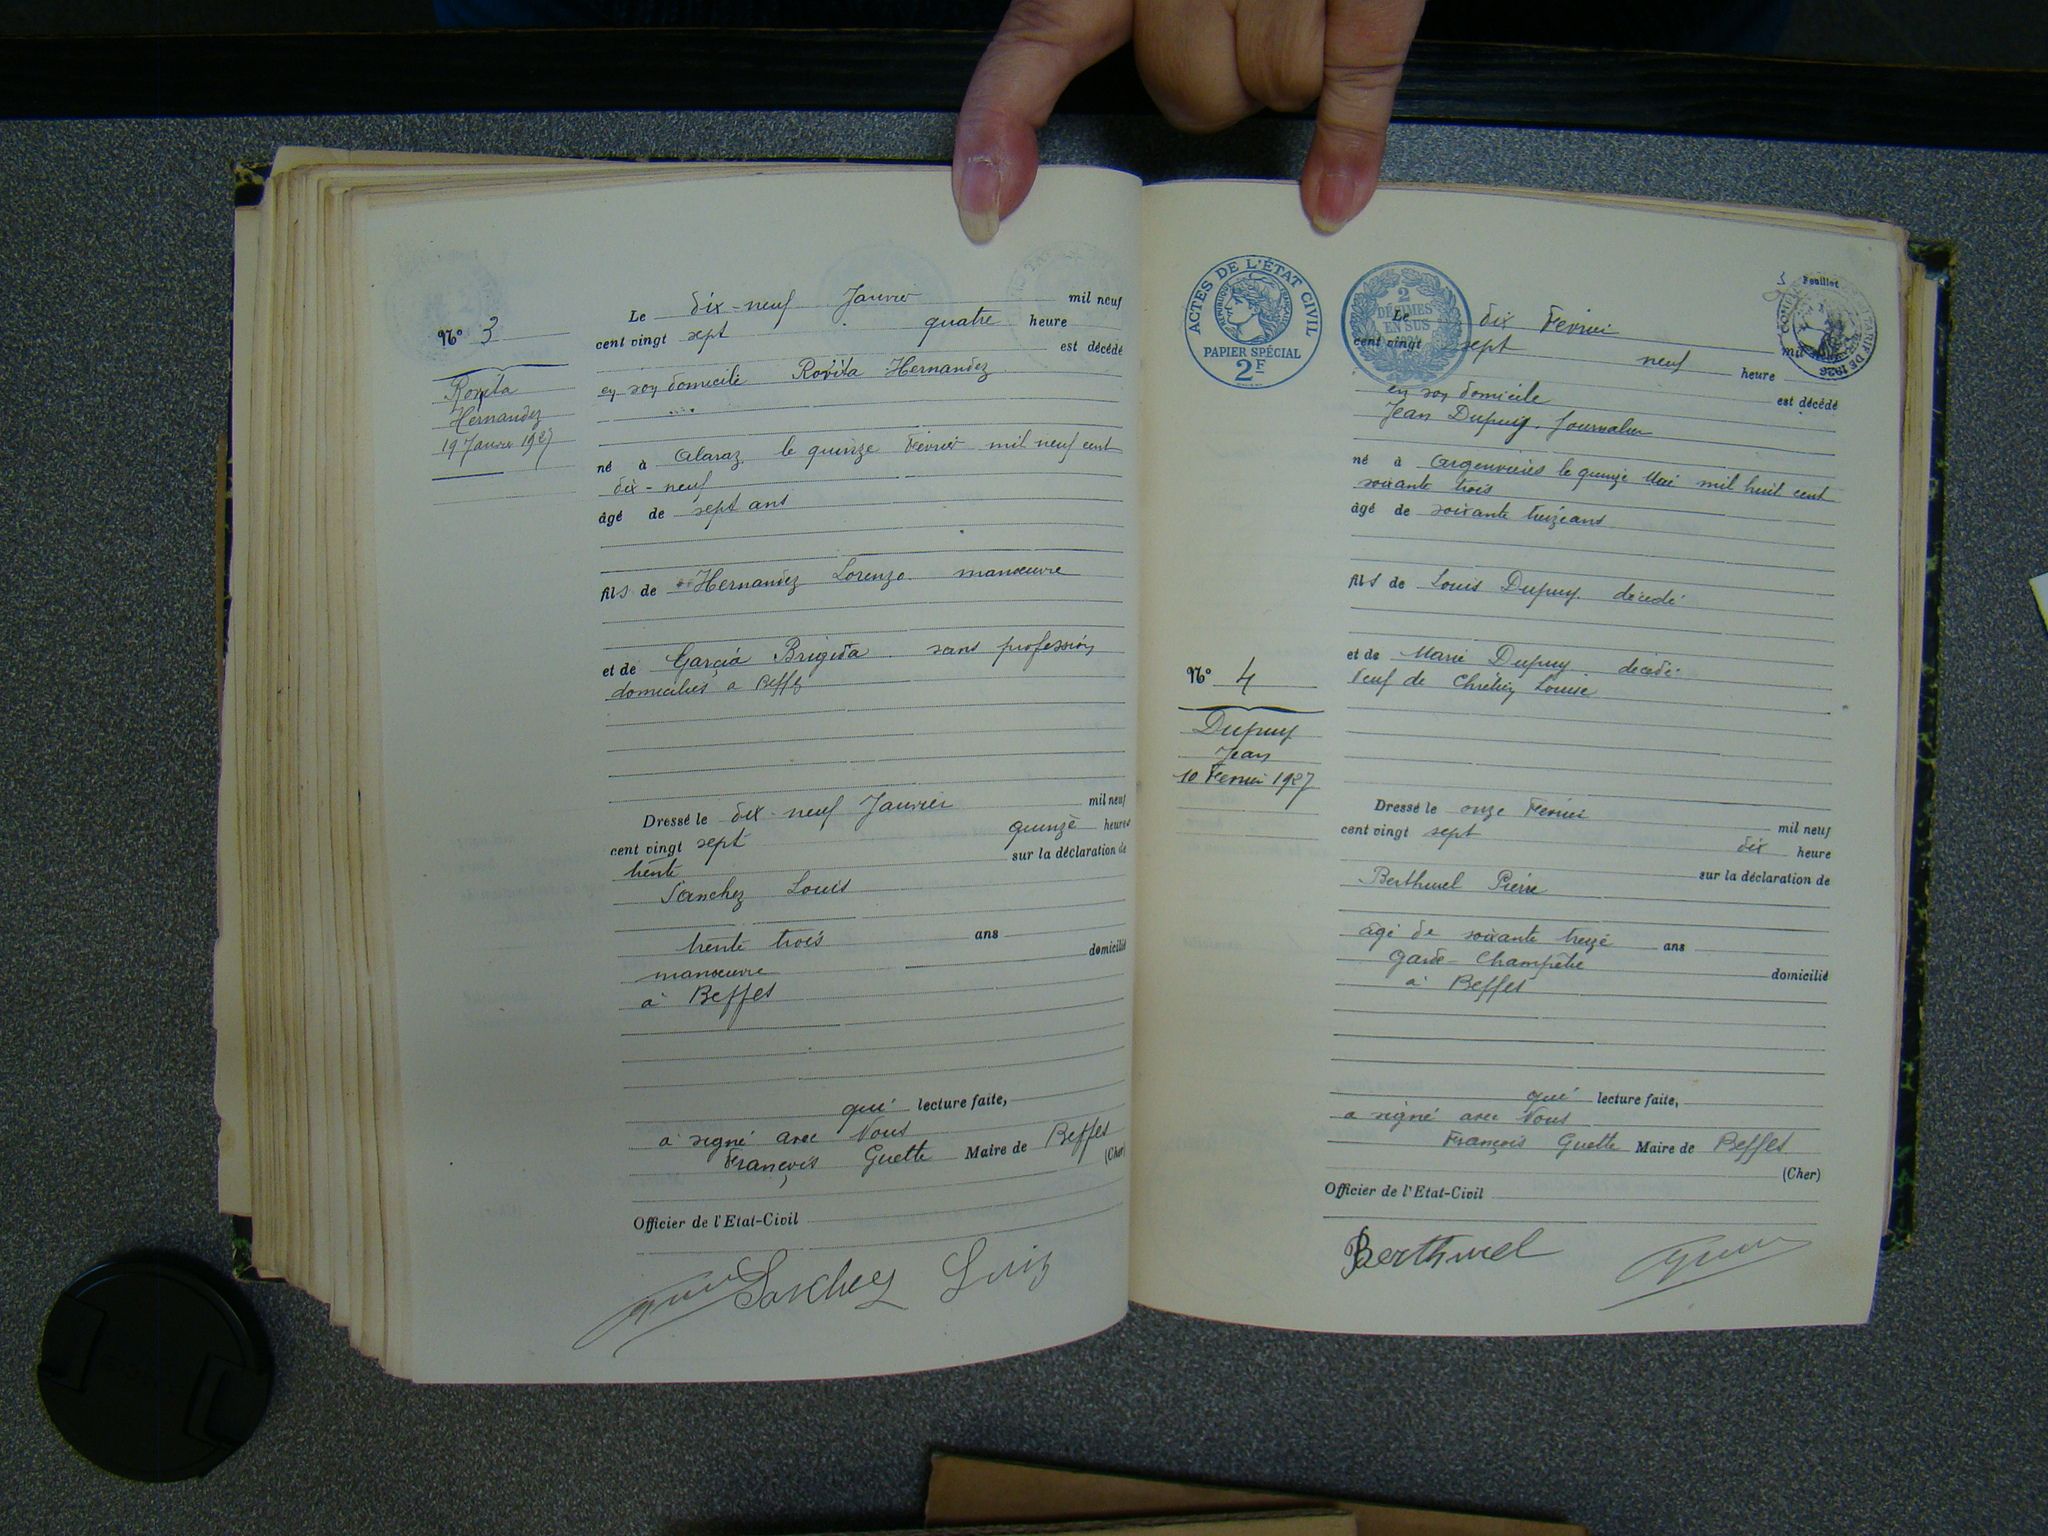 Le dix-neuf Janvier mil neuf
Nº 3
cent vingt sept quatre heure
est décédé
en son domicile Rovita Hernandez
Rovita
Hernandez
19 Janvier 1927
né à Alaraz le quinze Février mil neuf cent
dix-neuf
âgé de sept ans
fils de Hernandez Lorenzo manœuvre
et de Garcia Brigida sans profession
domiciliés à Beffes
Dressé le dix-neuf Janvier mil neuf
cent vingt sept quinze heures
trente sur la déclaration de
Sanchez Louis
trente trois ans
manœuvre domicilié
à Beffes
qui lecture faite,
a signé avec Nous
François Guette Maire de Beffes
(Cher)
Officier de l'Etat-Civil
Sanchez Luiz
ACTES DE L'ÉTAT CIVIL
RÉPUBLIQUE FRANÇAISE
PAPIER SPÉCIAL
2F
2
DÉCIMES
EN SUS
Feuillet
3
TARIF DE 1926
Le dix Février mil neuf
cent vingt sept neuf heure
en son domicile est décédé
Jean Dupuy, Journalier
né à Argenvières le quinze Mai mil huit cent
soixante trois
âgé de soixante treize ans
fils de Louis Dupuy décédé
et de Marie Dupuy décédé
Veuf de Chrétien Louise
Nº 4
Dupuy
Jean
10 Février 1927
Dressé le onze Février mil neuf
cent vingt sept dix heure
sur la déclaration de
Berthuel Pierre
agé de soixante treize ans
Garde-Champêtre domicilié
à Beffes
qui lecture faite,
a signé avec Nous
François Guette Maire de Beffes
(Cher)
Officier de l'Etat-Civil
Berthuel